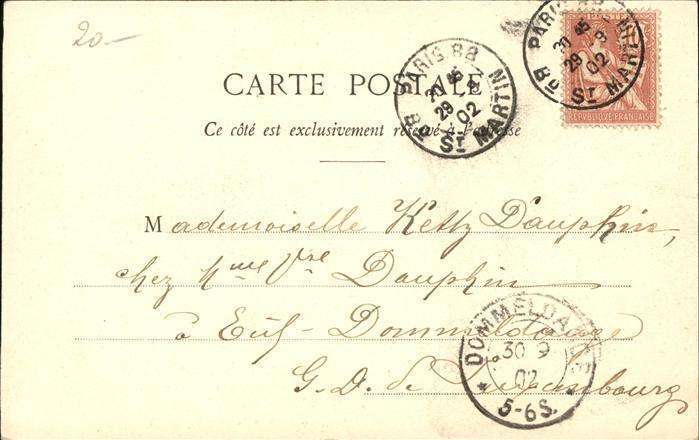 20.—
CARTE POSTALE
Ce côté est exclusivement réservé à l'adresse
PARIS 88
29 9
02
Bᴅ Sᴛ MARTIN
PARIS 88
29 9
02
Bᴅ Sᴛ MARTIN
RÉPUBLIQUE FRANÇAISE
Mademoiselle Ketty Dauphin,
chez Mme Vve Dauphin
à Eich-Dommeldange
G. D. de Luxembourg
DOMMELDANGE
30 9
02
5-6S.